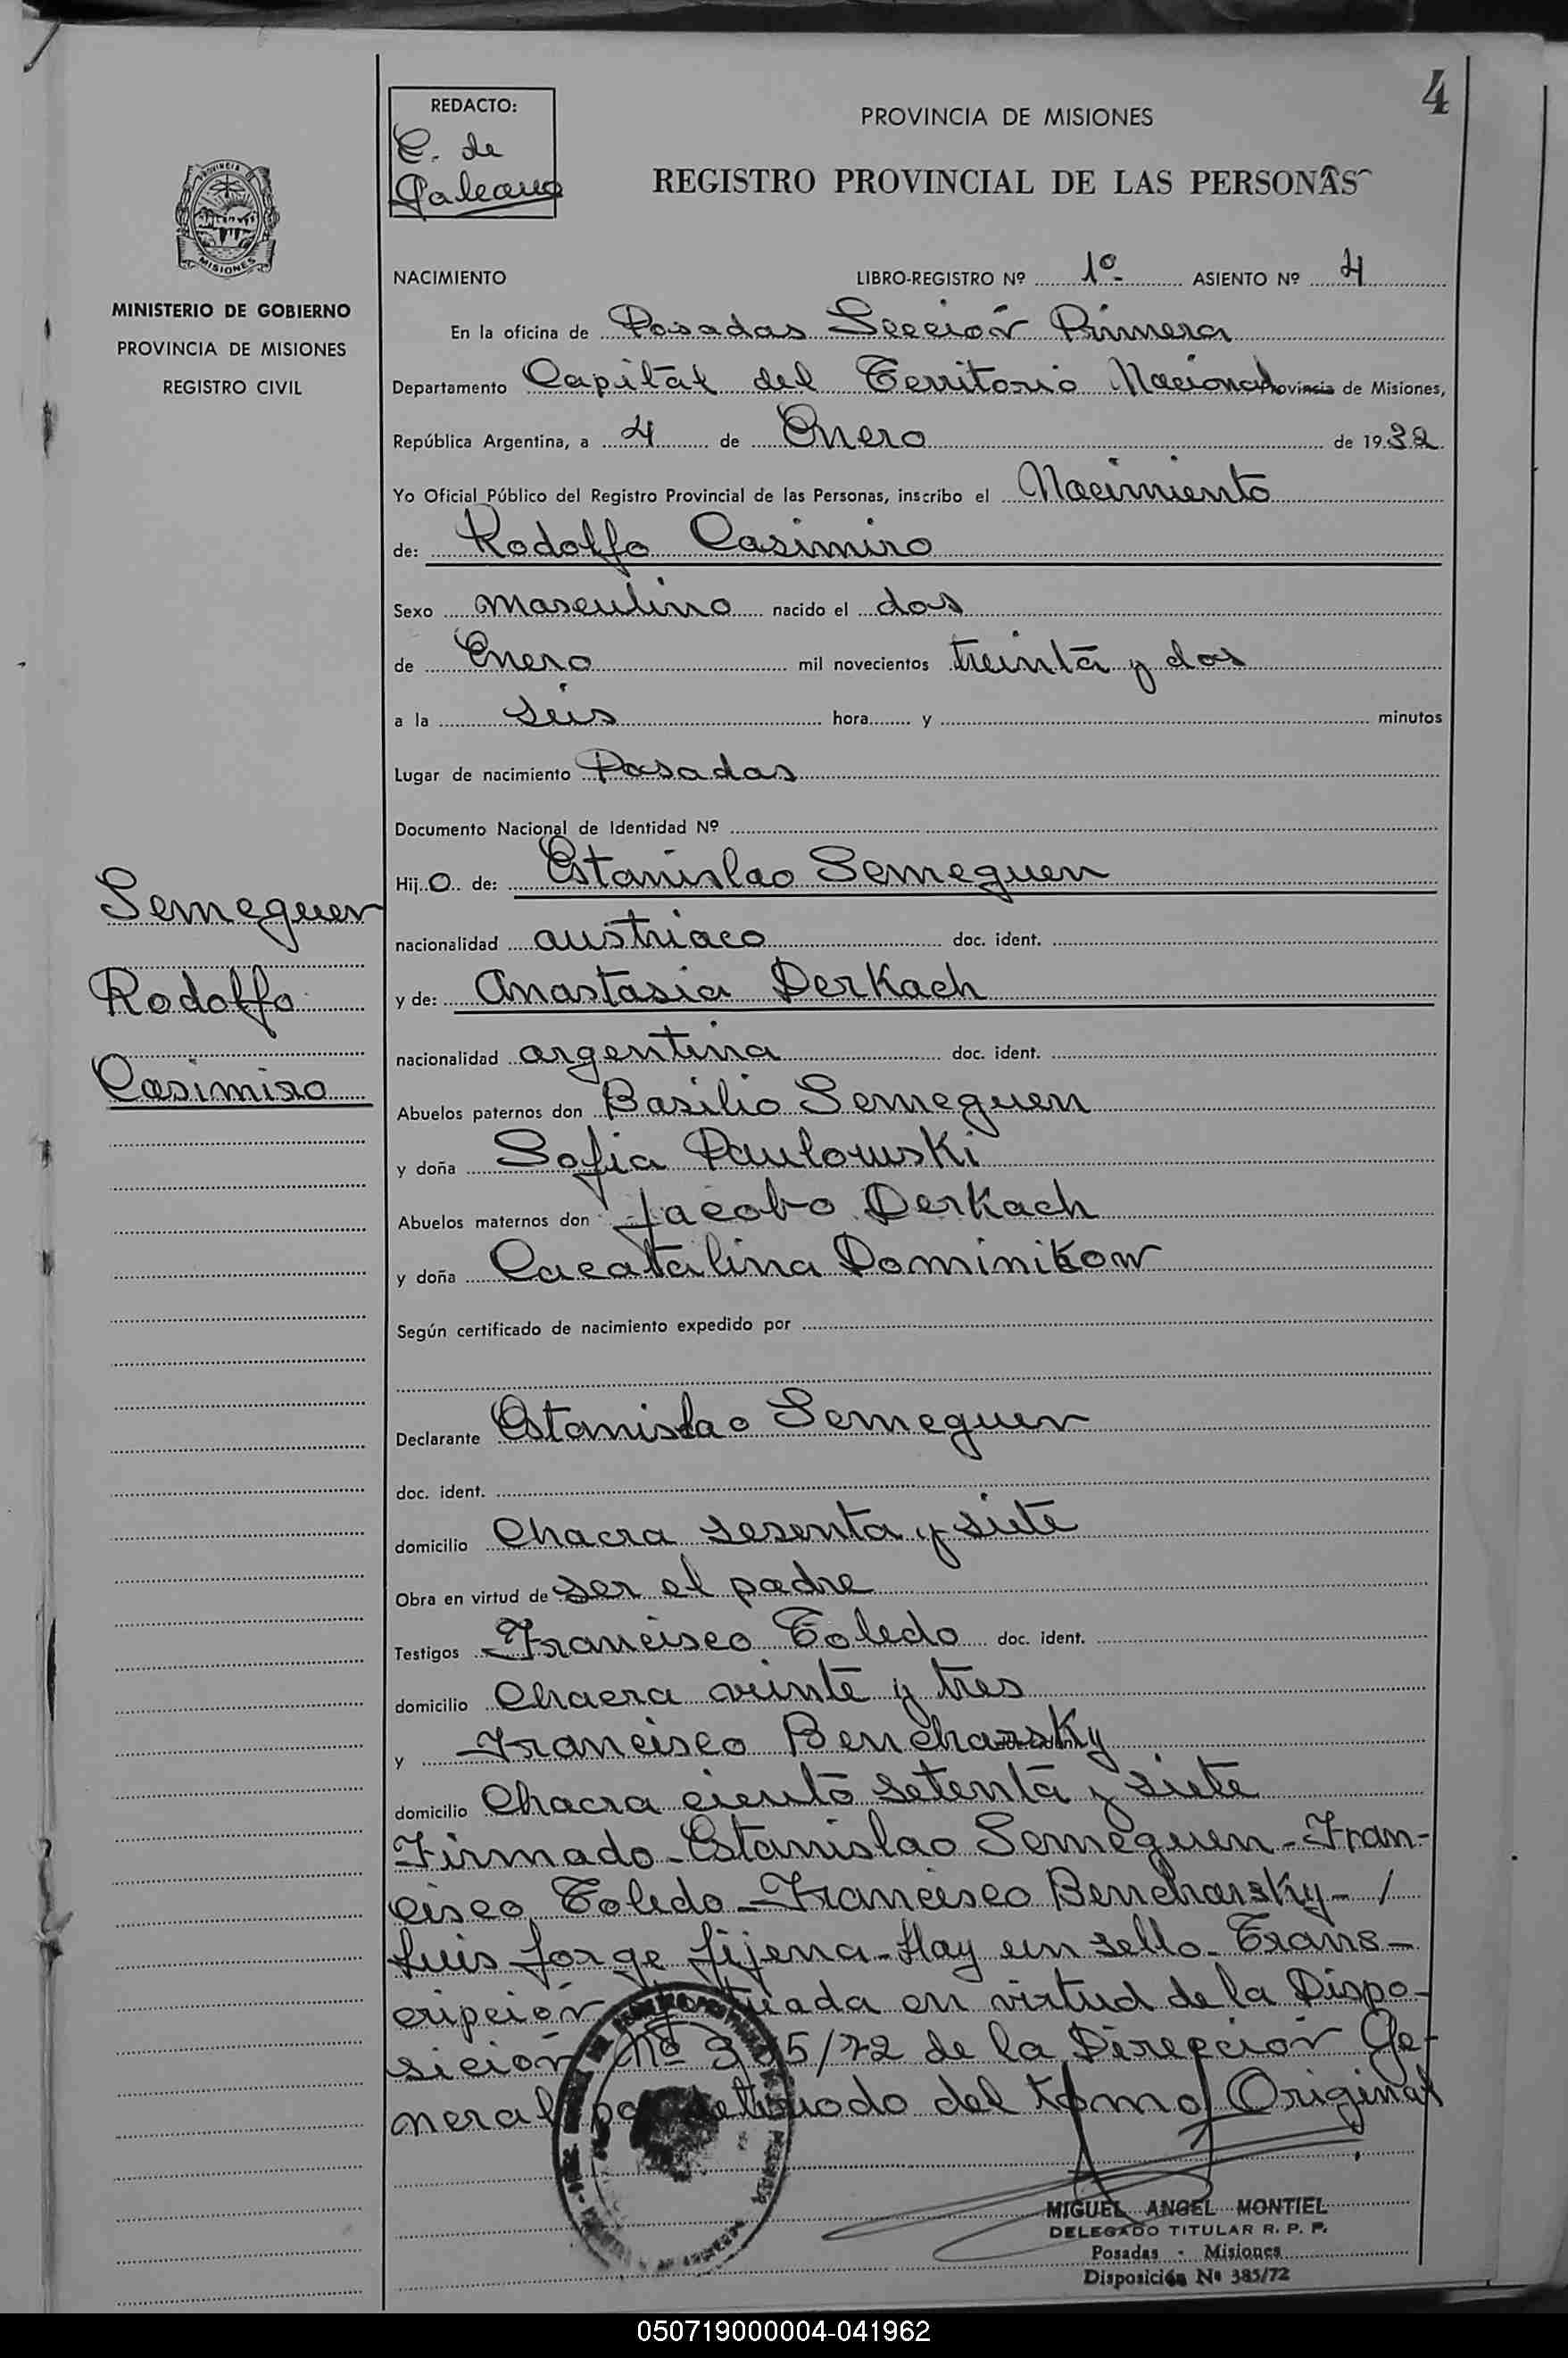 4
REDACTO:
C. de
Galeano
PROVINCIA DE MISIONES
REGISTRO PROVINCIAL DE LAS PERSONAS
PROVINCIA DE
MISIONES
MINISTERIO DE GOBIERNO
PROVINCIA DE MISIONES
REGISTRO CIVIL
NACIMIENTO LIBRO-REGISTRO Nº 1º ASIENTO Nº 4
En la oficina de Posadas Sección Primera
Departamento Capital del Territorio Nacional Provincia de Misiones,
República Argentina, a 4 de Enero de 1932
Yo Oficial Público del Registro Provincial de las Personas, inscribo el Nacimiento
de: Rodolfo Casimiro
Sexo masculino nacido el dos
de Enero mil novecientos treinta y dos
a la seis hora y minutos
Lugar de nacimiento Posadas
Documento Nacional de Identidad Nº
Hijo de: Estanislao Semeguen
nacionalidad austriaco doc. ident.
y de: Anastasia Derkach
nacionalidad argentina doc. ident.
Abuelos paternos don Basilio Semeguen
y doña Sofia Paulowski
Abuelos maternos don Jacobo Derkach
y doña Cacatalina Dominikow
Según certificado de nacimiento expedido por
Declarante Estanislao Semeguen
doc. ident.
domicilio Chacra sesenta y siete
Obra en virtud de ser el padre
Testigos Francisco Toledo doc. ident.
domicilio Chacra veinte y tres
y Francisco Bencharsky
domicilio Chacra ciento setenta y siete
Firmado-Estanislao Semeguen-Fran-
cisco Toledo-Francisco Bencharsky- /
Luis Jorge Jijena-Hay un sello-Trans-
cripción efectuada en virtud de la Dispo-
sición Nº 385/72 de la Dirección Ge-
neral por deteriodo del tomo Original
Semeguen
Rodolfo
Casimiro
MIGUEL ANGEL MONTIEL
DELEGADO TITULAR R. P. P.
Posadas - Misiones
Disposición Nº 385/72
050719000004-041962